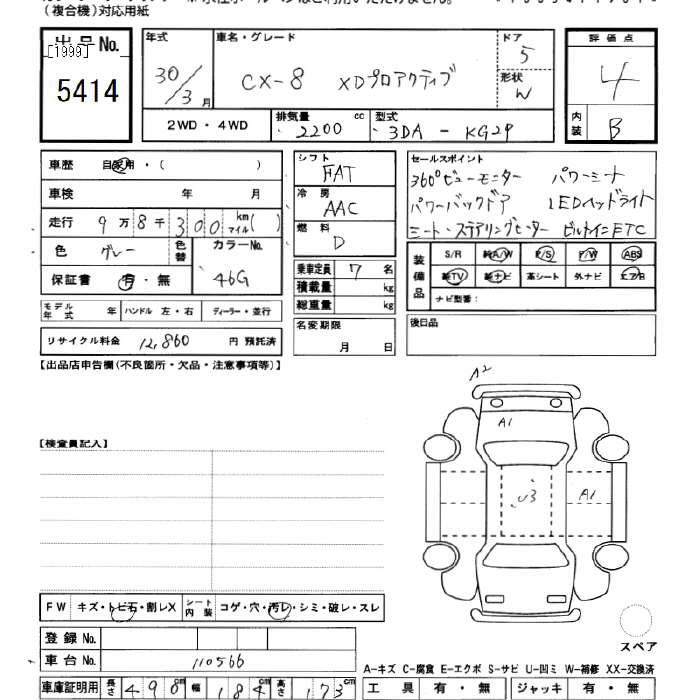 (複合機)対応用紙
出品No.
[1999]
5414
年式
30/3月
車名・グレード
CX-8 XDプロアクティブ
ドア
5
形状
W
評価点
4
内装
B
2WD・4WD
排気量 cc
2200
型式
3DA - KG2P
車歴 自家用・( )
車検 年 月
走行 9万8千300 km マイル( )
色 グレー
色替
カラーNo.
46G
保証書 有・無
モデル年式 年
ハンドル 左・右
ディーラー・並行
リサイクル料金 12,860 円 預託済
シフト
FAT
冷房
AAC
燃料
D
乗車定員 7 名
積載量 kg
総重量 kg
名変期限
月 日
セールスポイント
360°ビューモニター パワーシート
パワーバックドア LEDヘッドライト
シート・ステアリングヒーター ビルトインETC
装備品
S/R 純A/W P/S P/W ABS
純TV 純ナビ 革シート 外ナビ エアB
ナビ型番:
後日品
【出品店申告欄(不良箇所・欠品・注意事項等)】
【検査員記入】
A2
A1
U3
A1
スペア
FW キズ・トビ石・割レX
シート内装 コゲ・穴・汚レ・シミ・破レ・スレ
登録No.
車台No. 110566
A-キズ C-腐食 E-エクボ S-サビ U-凹ミ W-補修 XX-交換済
車庫証明用 長さ 490cm 幅 184cm 高さ 173cm
工具 有・無 ジャッキ 有・無